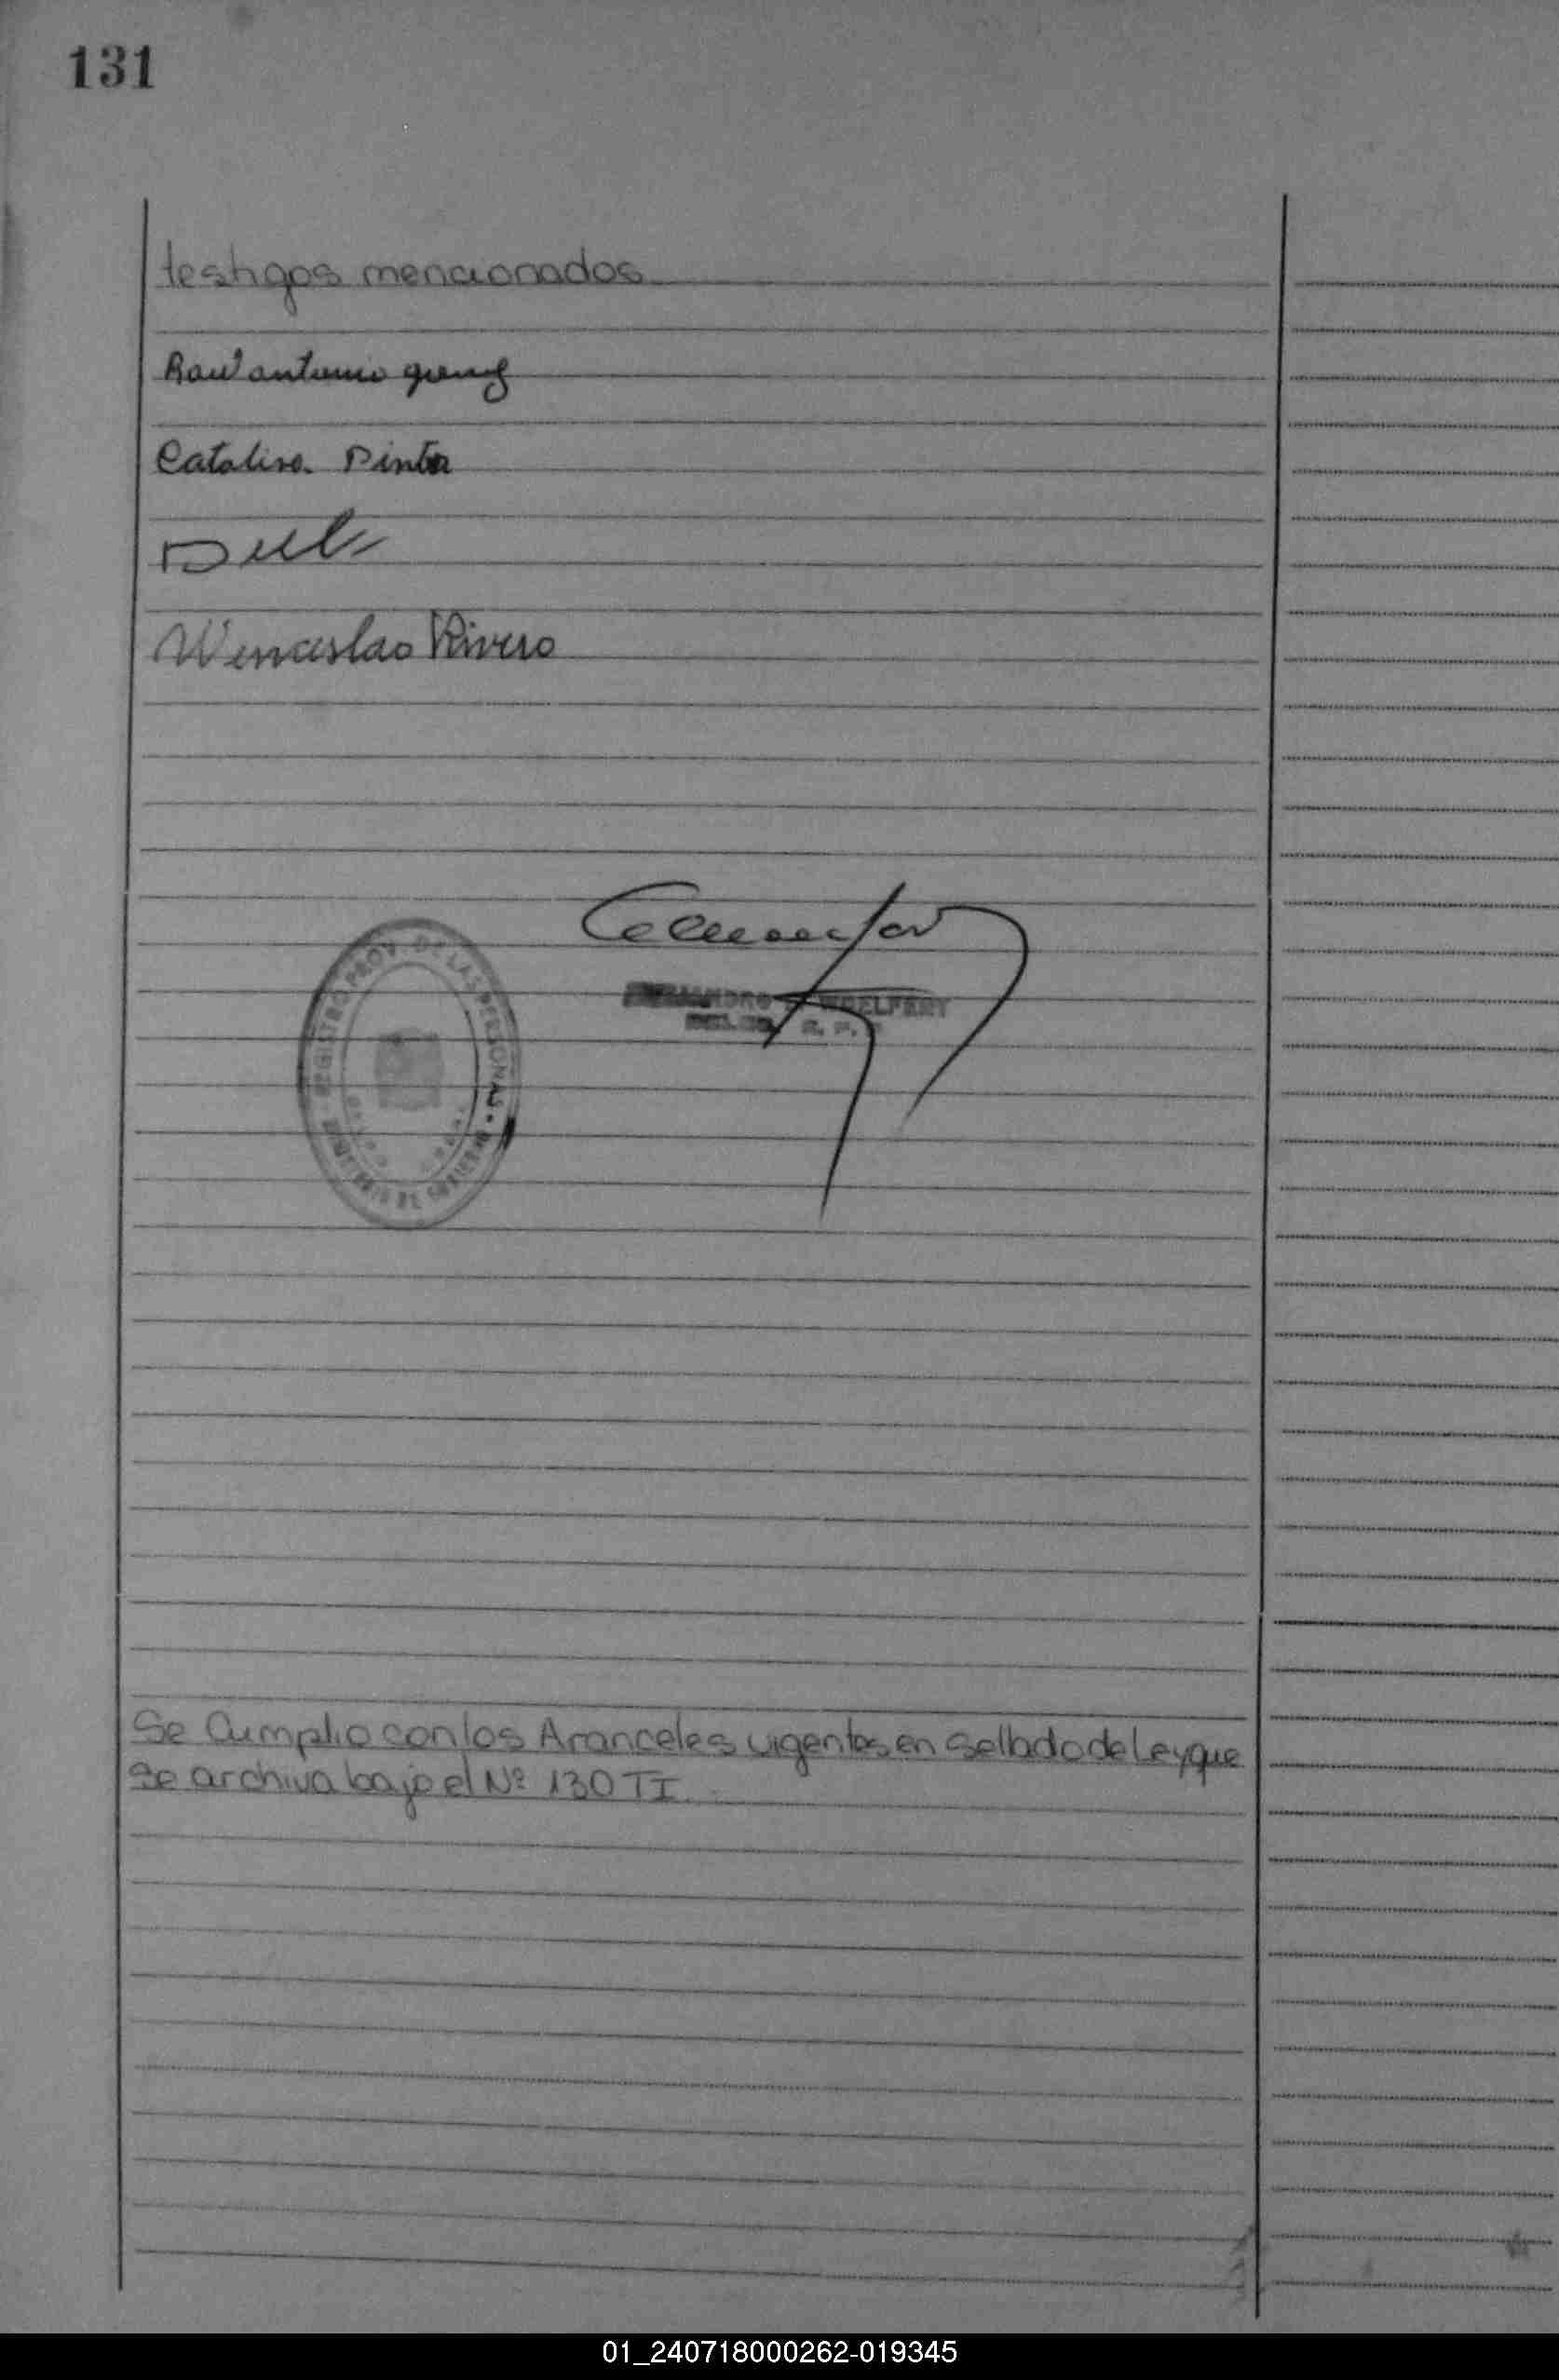 131
testigos mencionados
Raul antonio
Catalina Pinto
Wenceslao Rivero
REGISTRO PROV. DE LAS PERSONAS
MINISTERIO DE GOBIERNO
Se Cumplio con los Aranceles vigentes en Sellado de Ley que
se archiva bajo el Nº 130 TI.
01_240718000262-019345